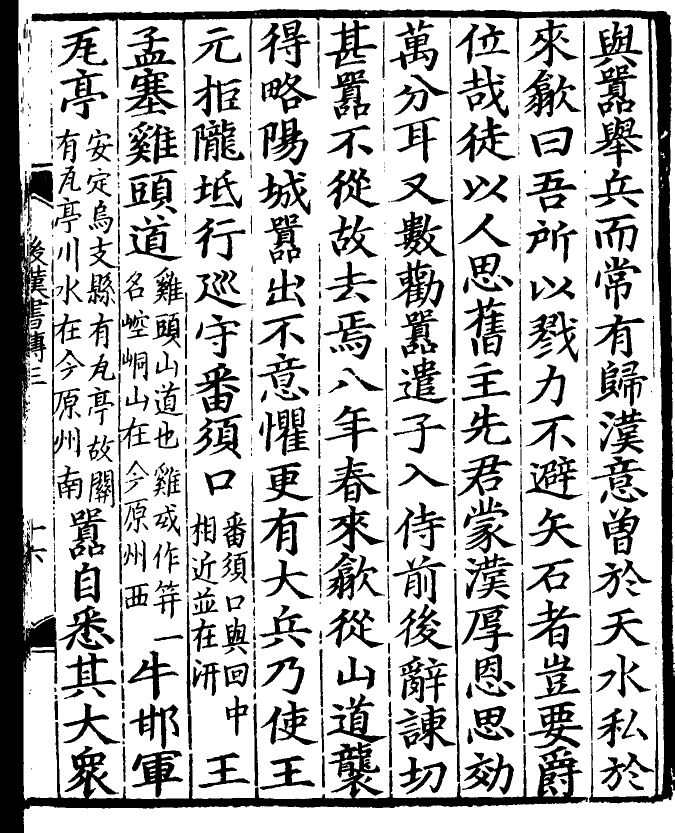 與囂舉兵而常有歸漢意曾於天水私於
來歙曰吾所以戮力不避矢石者豈要爵
位哉徒以人思舊主先君蒙漢厚恩思効
萬分耳又數勸囂遣子入侍前後辭諫切
甚囂不從故去焉八年春來歙從山道襲
得略陽城囂出不意懼更有大兵乃使王
元拒隴坻行巡守番須口番須口與回中相近並在汧王
孟塞雞頭道雞頭山道也雞或作笄一名崆峒山在今原州西牛邯軍
瓦亭安定烏支縣有瓦亭故關有瓦亭川水在今原州南囂自悉其大衆
後漢書傳三
十六